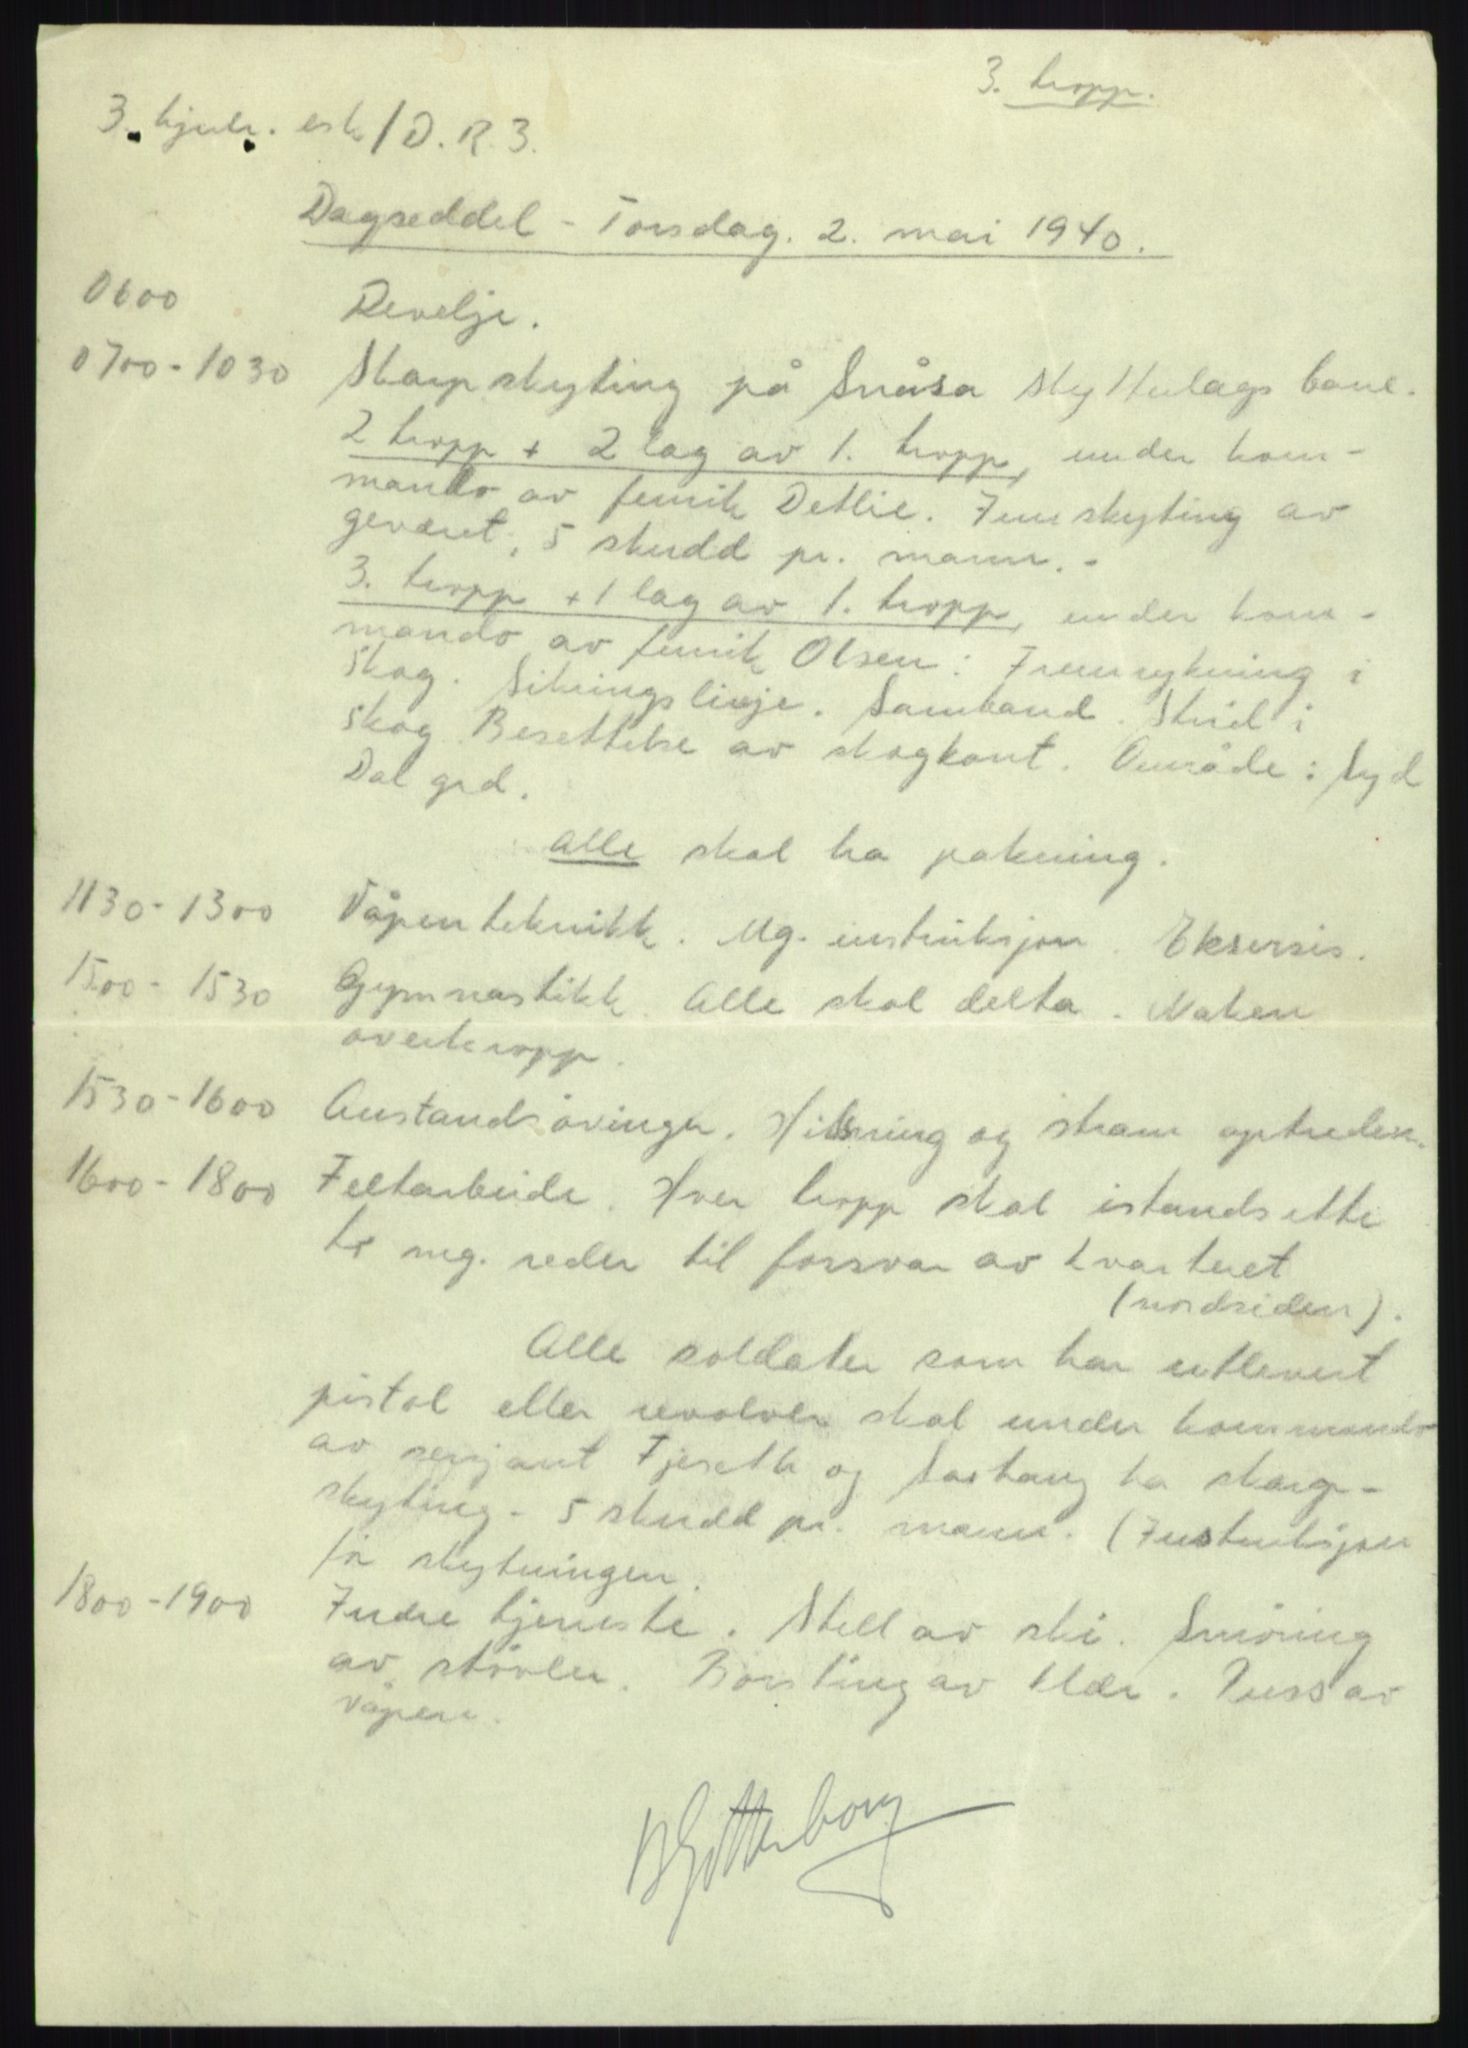 3. tropp.
3. hjulr. esk/D.R.3.
Dagseddel - Torsdag. 2. mai 1940.
0600 Revelje.
0700-1030 Skarpskyting på Snåsa skytterlags bane.
2 tropp + 2 lag av 1. tropp, under kom-
mando av fenrik Detlie. Innskyting av
geværet, 5 skudd pr. mann. -
3. tropp + 1 lag av 1. tropp, under kom-
mando av fenrik Olsen: Fremrykning i
skog. Sikringslinje. Samband. Strid i
skog. Besettelse av skogkant. Område: Syd
Dal grd.
Alle skal ha pakning.
1130-1300 Våpenteknikk. Mg. instruksjon. Eksersis.
1500-1530 Gymnastikk. Alle skal delta. Naken
overkropp.
1530-1600 Anstandsøvinger. Hilsning og stram optreden.
1600-1800 Feltarbeide. Hver tropp skal istandsette
to mg. reder til forsvar av kvarteret
(nordsiden).
Alle soldater som har utlevert
pistol eller revolver skal under kommando
av sersjant Fjeseth og ha skarp-
skyting - 5 skudd pr. mann. (Instruksjon
før skytningen.
1800-1900 Indre tjeneste. Stell av ski. Smøring
av støvler. Børsting av klær. Puss av
våpen.